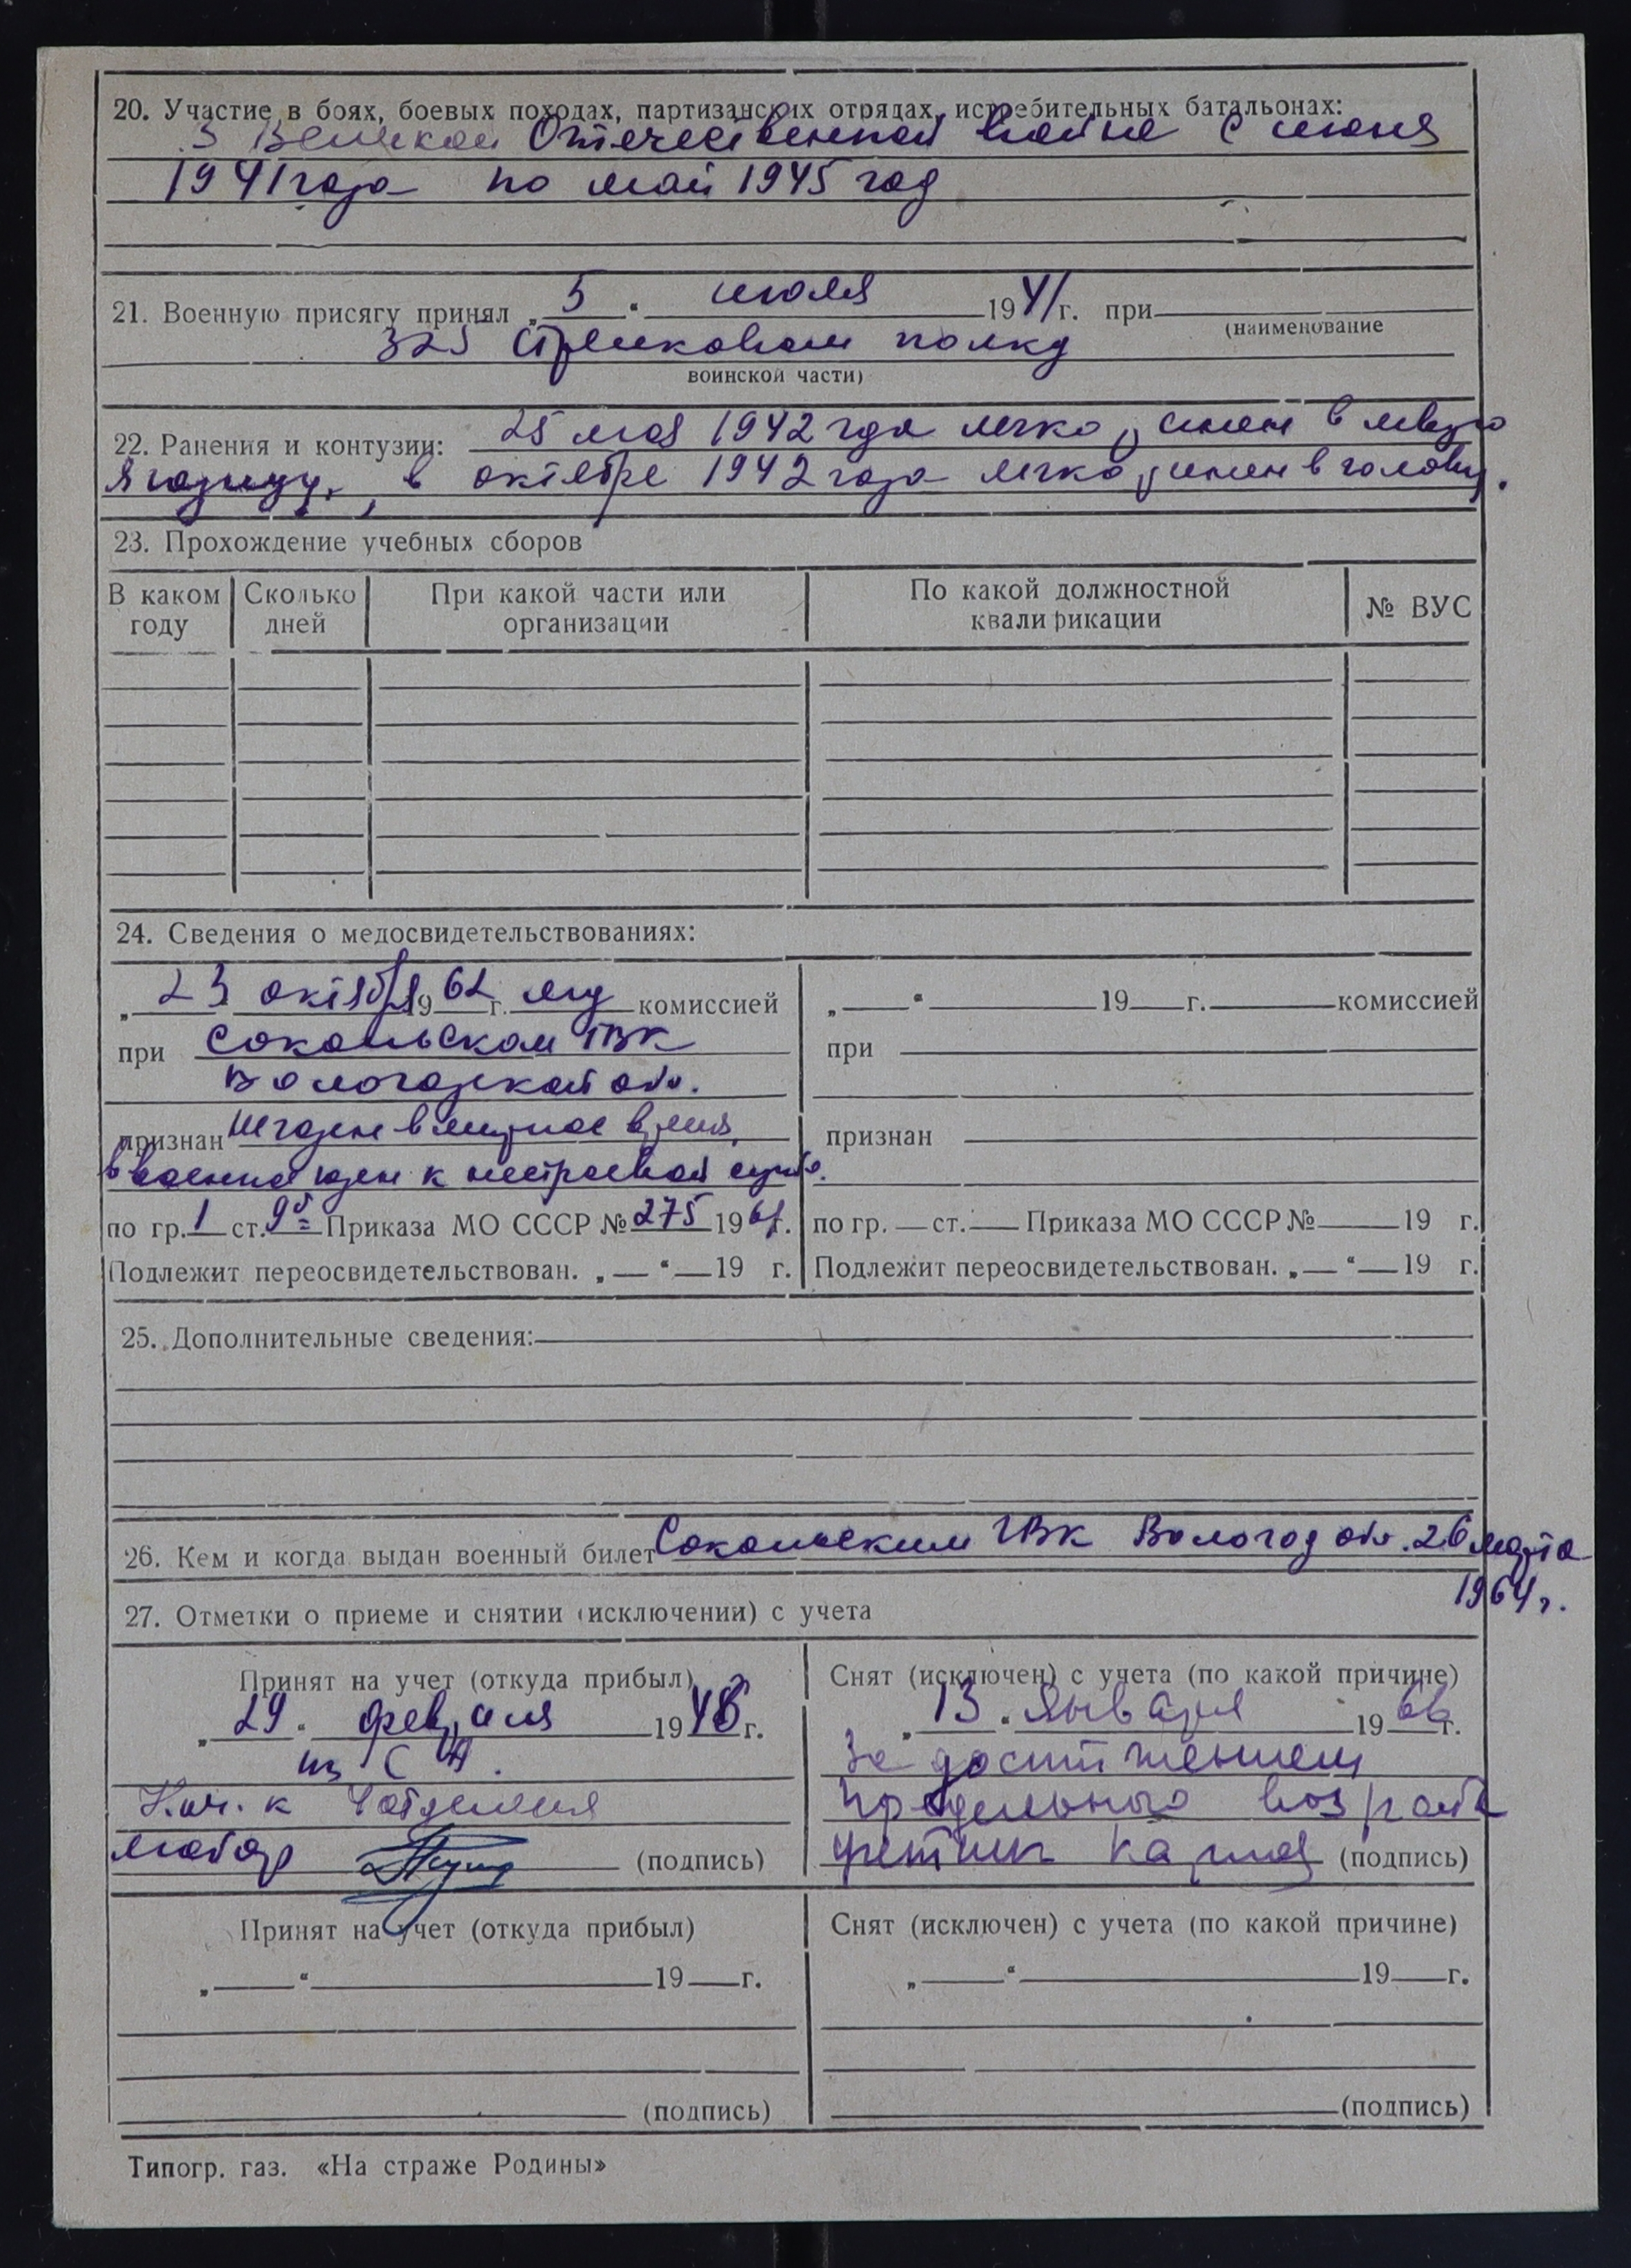 20. Участие в боях, боевых походах, партизанских отрядах, истребительных батальонах:
В Великой Отечественной войне с июня
1941 года по май 1945 год
21. Военную присягу принял „ 5 “ июля 1941 г. при
(наименование
325 стрелковом полку
воинской части)
22. Ранения и контузии: 25 мая 1942 года легко ранен в левую
ягодицу, в октябре 1942 года легко ранен в голову.
23. Прохождение учебных сборов
В каком году Сколько дней При какой части или организации По какой должностной квалификации № ВУС
24. Сведения о медосвидетельствованиях:
„ 23 октября 1962 г. мед комиссией
при Сокольском ГВК
Вологодской обл.
признан Не годен в мирное время,
в военное годен к нестроевой службе.
по гр. 1 ст. 9б Приказа МО СССР № 275 1961 г.
Подлежит переосвидетельствован. „ “ 19 г.
„ “ 19 г. комиссией
при
признан
по гр. ст. Приказа МО СССР № 19 г.
Подлежит переосвидетельствован. „ “ 19 г.
25. Дополнительные сведения:
26. Кем и когда выдан военный билет Сокольским ГВК Вологод обл. 26 марта
1964 г.
27. Отметки о приеме и снятии (исключении) с учета
Принят на учет (откуда прибыл)
„ 29 “ февраля 1948 г.
из С А.
Нач-к 4 отделения
майор
(подпись)
Снят (исключен) с учета (по какой причине)
„ 13 “ января 1966 г.
За достижением
предельного возраста
(подпись)
Принят на учет (откуда прибыл)
„ “ 19 г.
(подпись)
Снят (исключен) с учета (по какой причине)
„ “ 19 г.
(подпись)
Типогр. газ. «На страже Родины»